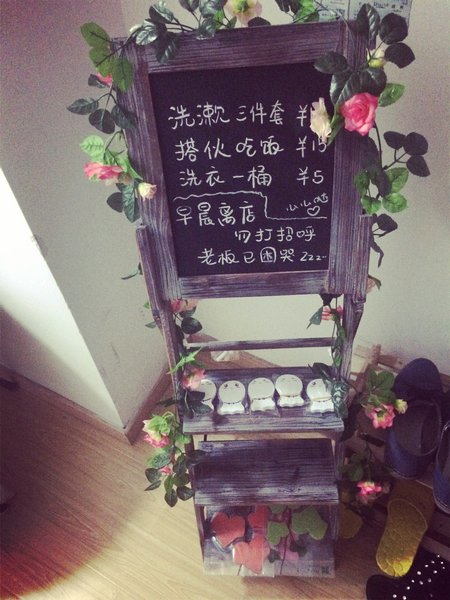 洗漱三件套 ¥
搭伙吃饭 ¥15
洗衣一桶 ¥5
早晨离店
勿打招呼
老板已困哭 zzz...